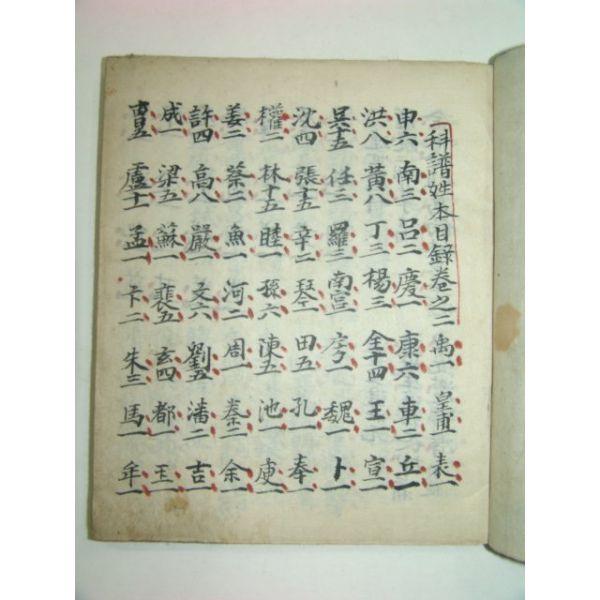 科譜姓本目錄卷之二 禹一 皇甫一 表一
申六 南三 呂二 慶一 康六 車二 丘一
洪八 黃八 丁三 楊三 全十四 王一 宣一
吳十五 任三 羅三 南宮一 房一 魏一 卜一
沈四 張十五 辛二 琴一 田五 孔一 奉一
權二 林十五 睦一 孫六 陳五 池一 庾一
姜二 蔡二 魚一 河二 周一 秦二 余一
許四 高八 嚴一 文六 劉五 潘二 吉一
成一 梁五 蘇一 裵五 玄四 都一 玉一
曺五 盧十一 孟一 卞二 朱三 馬一 牟一